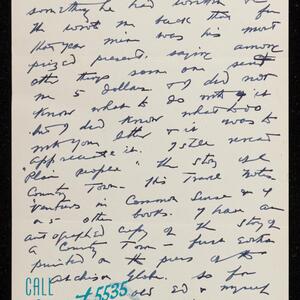 something he had written &
the worst me back then for
that year mine was his most
prized present, saying among
other things some one sent
me 5 dollars & I did not
know what to do with it
but I did know what to do
with your letter & it was to
appreciate it. I still reread
"Plain people" the story of
County Town — his Travel Notes
Ventures in Common Sense & 4
or 5 other books. I have an
autographed copy of the Story of
a County Town — first Edition
published on the press of the
Atchison Globe. so far
old Ed & myself
CALL
#5535